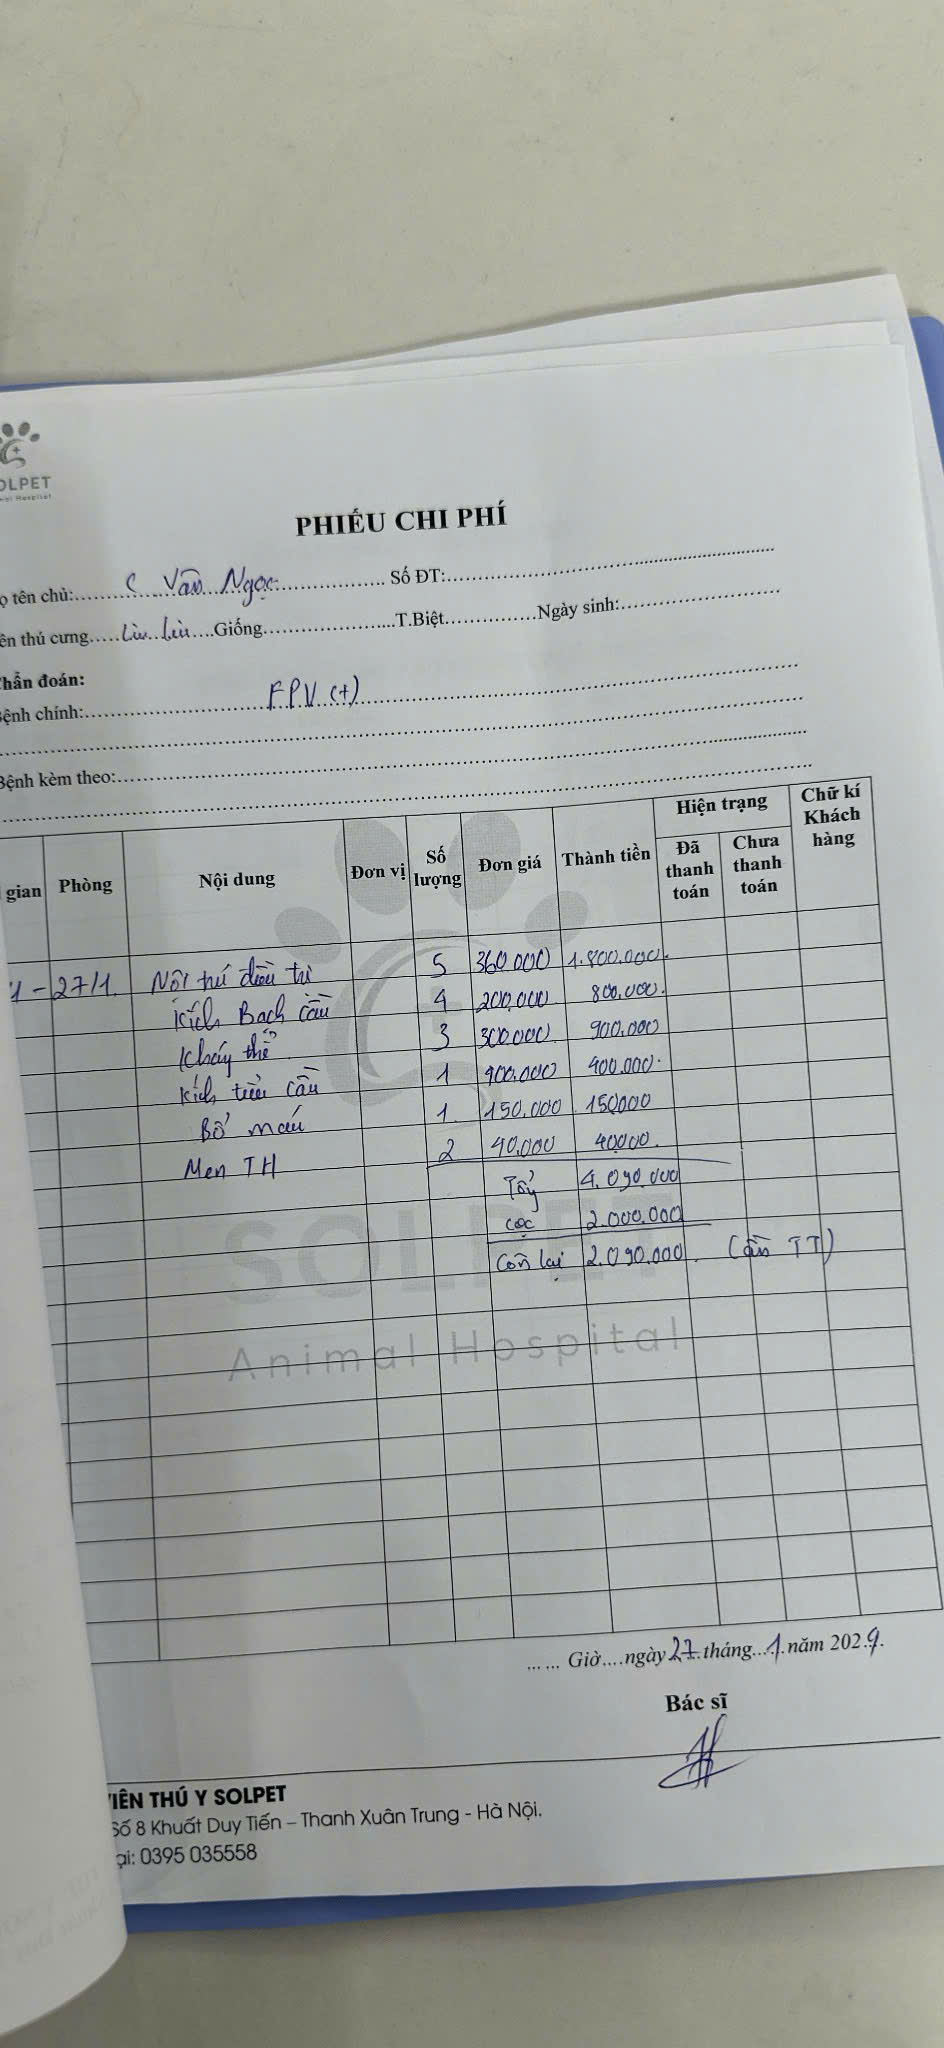 OLPET
PHIẾU CHI PHÍ
ọ tên chủ: C Vân Ngọc Số ĐT:
ên thú cưng Lìu Lìu Giống T.Biệt Ngày sinh:
hẩn đoán:
Bệnh chính: FPV (+)
Bệnh kèm theo:
gian Phòng Nội dung Đơn vị Số lượng Đơn giá Thành tiền Hiện trạng Đã thanh toán Chưa thanh toán Chữ kí Khách hàng
1 - 27/1. Nội trú điều trị 5 360.000 1.800.000.
Kích Bạch cầu 4 200,000 800,000.
Kháng thể 3 300.000 900.000
Kích tiểu cầu 1 400.000 400.000.
Bổ máu 1 150.000 150000
Men TH 2 40.000 40000.
Tổng 4.090.000
cọc 2.000.000
Còn lại 2.090.000 (cần TT)
SOLPET
Animal Hospital
Giờ....ngày 27 tháng 1 năm 2024.
Bác sĩ
IÊN THÚ Y SOLPET
Số 8 Khuất Duy Tiến – Thanh Xuân Trung - Hà Nội.
ại: 0395 035558